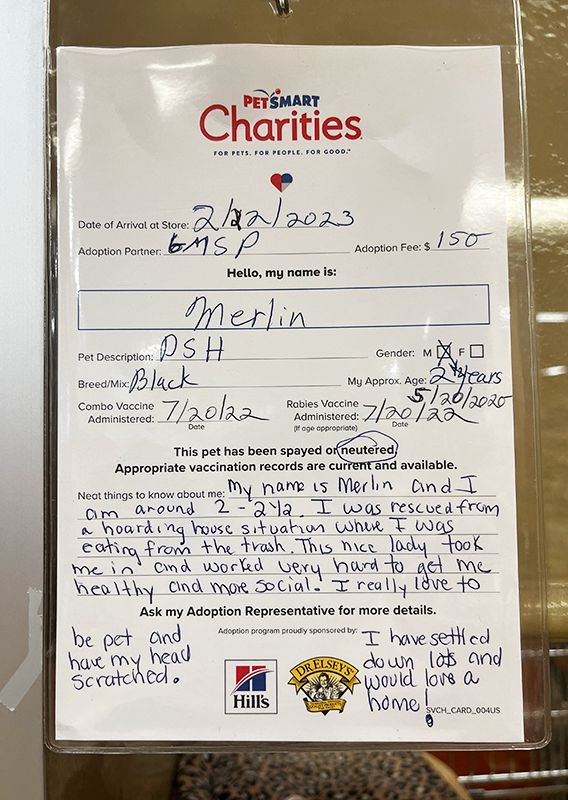 PETSMART
Charities
FOR PETS. FOR PEOPLE. FOR GOOD.™
Date of Arrival at Store: 2/22/2023
Adoption Partner: GMSP Adoption Fee: $ 150
Hello, my name is:
Merlin
Pet Description: DSH Gender: M ☒ F ☐
Breed/Mix: Black My Approx. Age: 2 1/2 years
5/20/2020
Combo Vaccine Administered: 7/20/22 Rabies Vaccine Administered: 7/20/22
Date (If age appropriate) Date
This pet has been spayed or neutered.
Appropriate vaccination records are current and available.
Neat things to know about me: My name is Merlin and I
am around 2 - 2 1/2. I was rescued from
a hoarding house situation where I was
eating from the trash. This nice lady took
me in and worked very hard to get me
healthy and more social. I really love to
Ask my Adoption Representative for more details.
be pet and
have my head
scratched.
Adoption program proudly sponsored by:
Hill's
DR ELSEY'S
I have settled
down lots and
would love a
home!
SVCH_CARD_004US